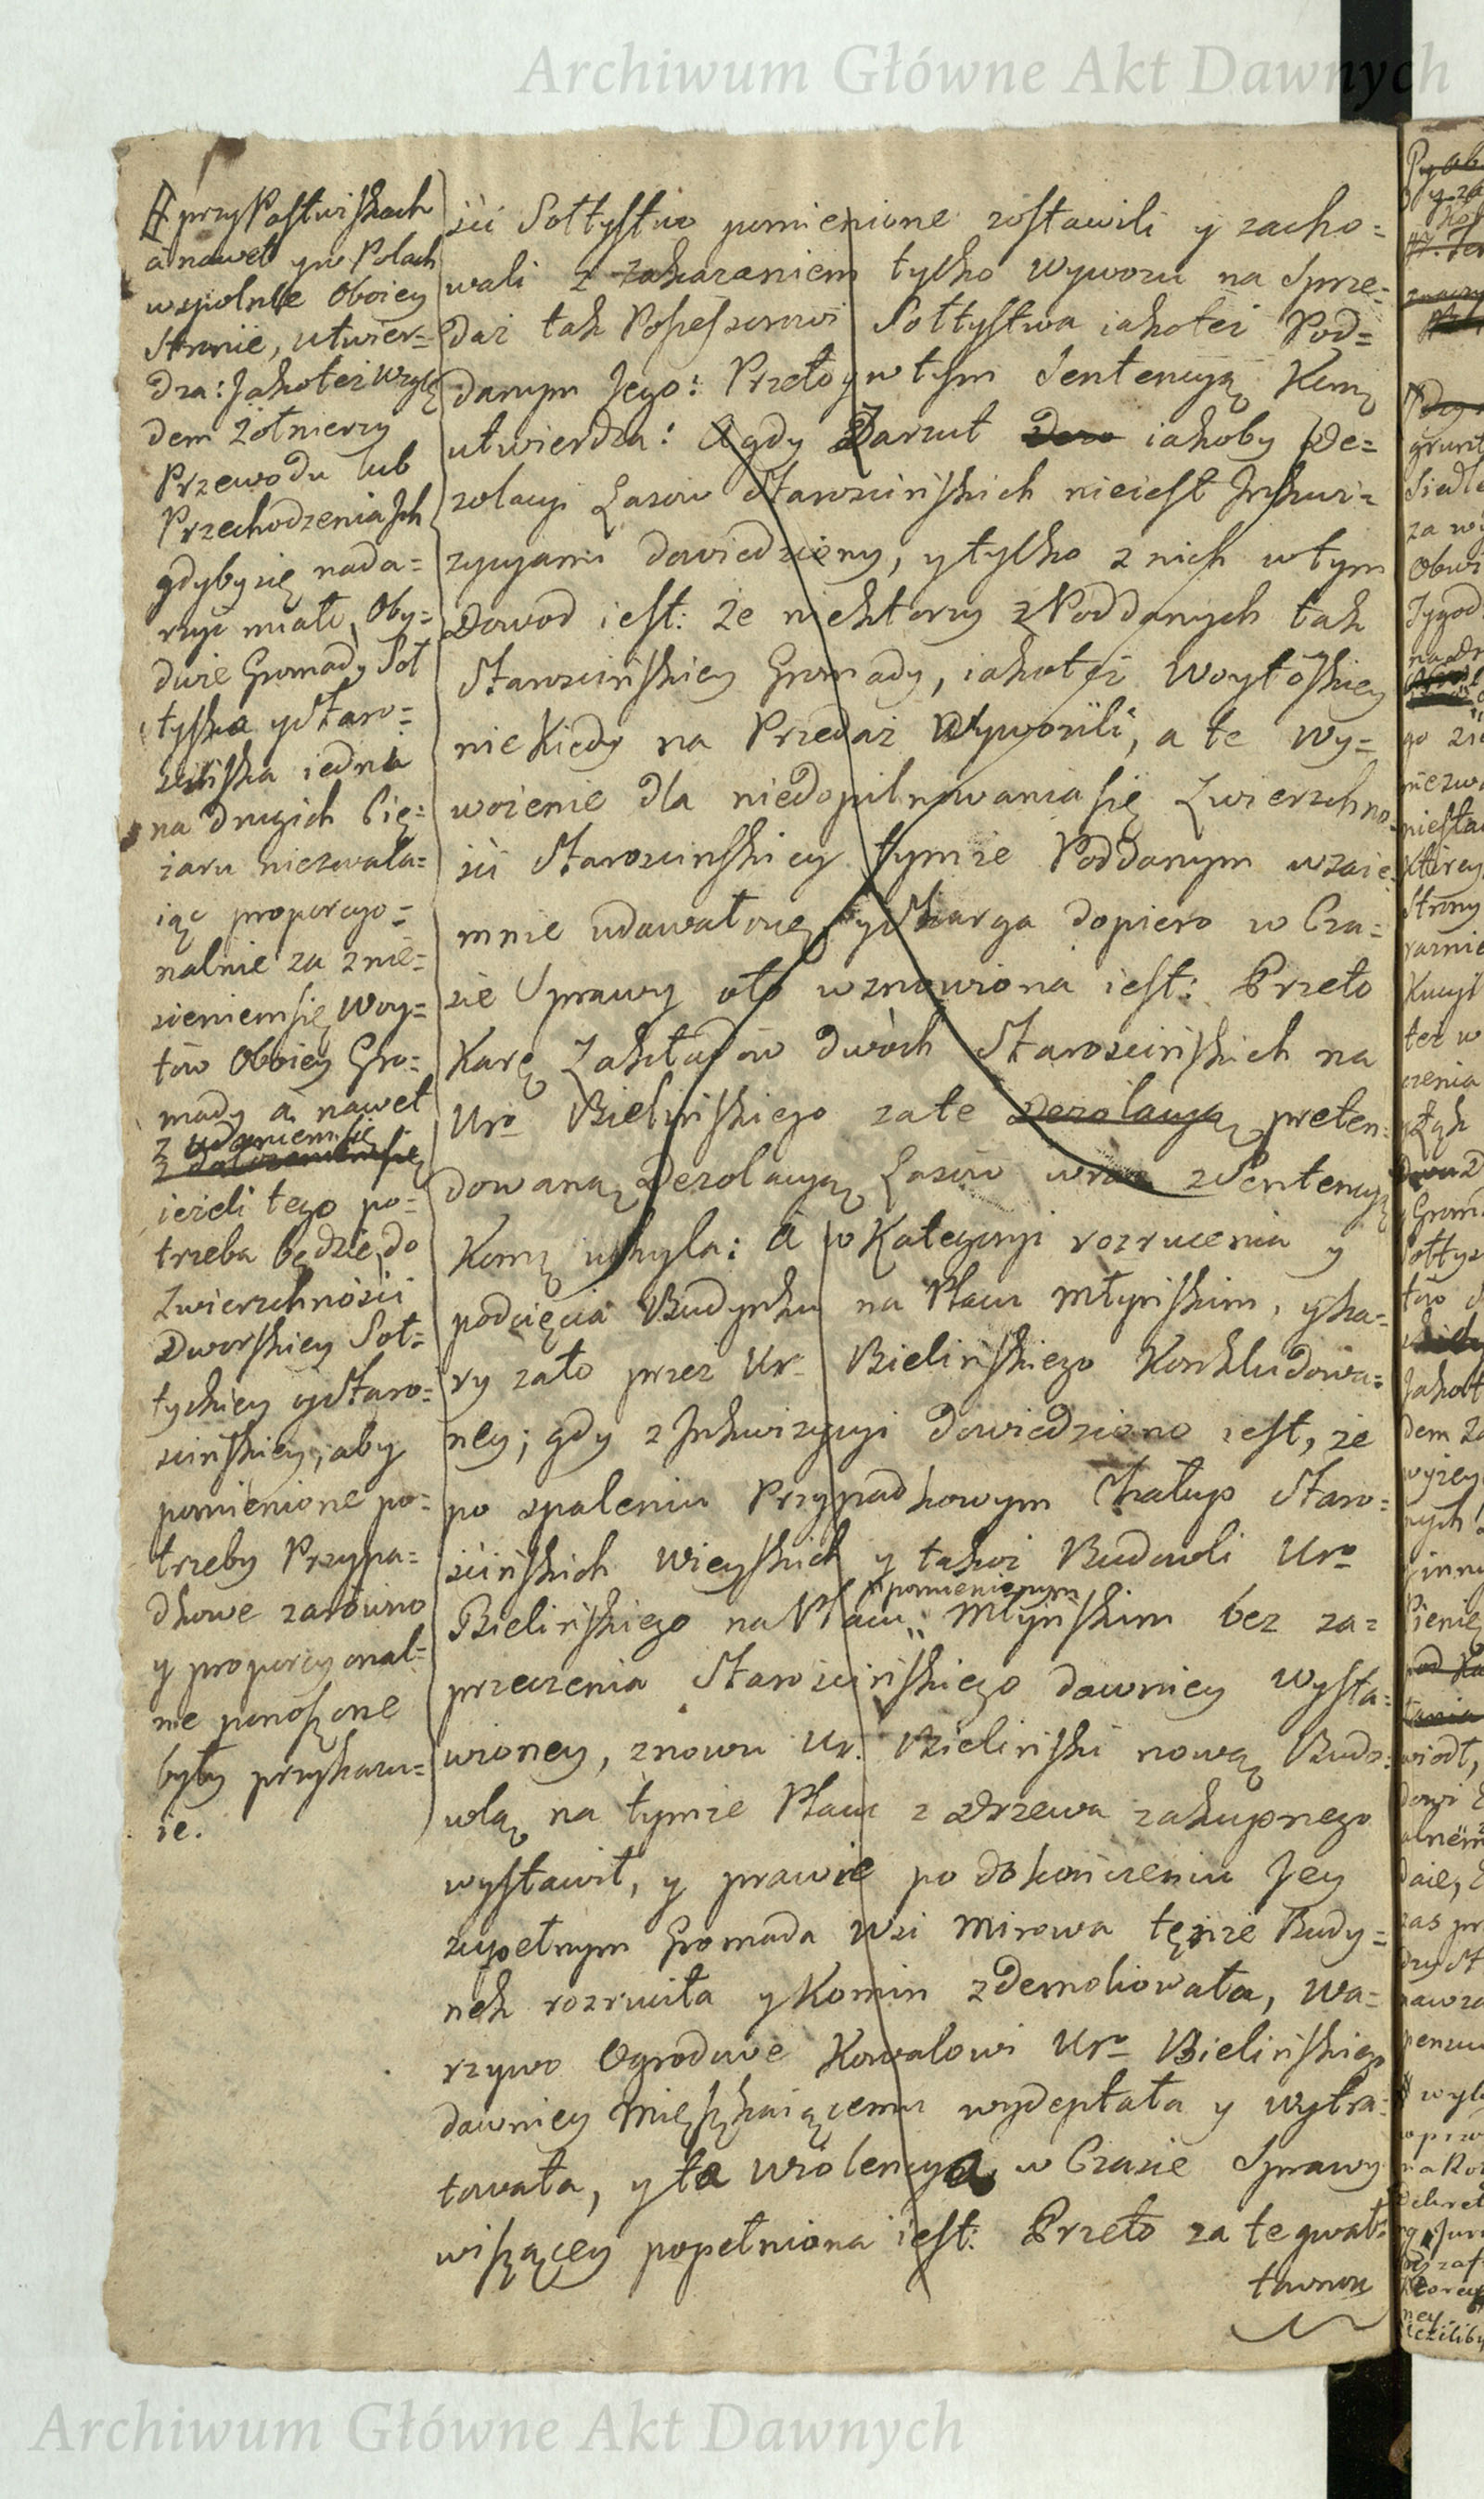 Archiwum Główne Akt Dawnych
# przy Pastwiskach
a nawet y w Polach
wspolnie Oboiey
Stronie, utwier=
dza: Jakoteż wzglę
dem Żołnierzy
Przewodu lub
Przechodzenia Jch
gdyby się nada=
rzyć miało, Oby=
dwie Gromady Soł
tyska y Staro=
scińska iedna
na drugich Cię=
żaru niezwala=
iąc proporcyo=
nalnie za znie=
sieniem się Woy=
tów Oboiey Gro=
mady a nawet
z udaniem się
ieżeli tego po=
trzeba będzie do
Zwierzchności
Dworskiey Soł=
tyskiey y Staro=
scińskiey, aby
pomienione po=
trzeby Przypa=
dkowe zarówno
y proporcyonal=
nie ponoszone
były przykazu=
ie.
ści Sołtystwo pomienione zostawili y zacho=
wali z zakazaniem tylko wywozu na Sprze=
daż tak Possessorowi Sołtystwa iakoteż Pod=
danym Jego: Przeto y w tym Sentencyą Kom̃
utwierdza: A gdy Zarzut iakoby De=
zolacyi Lasow Starościńskich nieiest Jnkwi=
zycyami dowiedziony, y tylko z nich w tym
Dowod iest: że niektorzy z Poddanych tak
Starościńskiey Gromady, iakoteż Woytoskiey
niekiedy na Przedaż Wywozili, a te wy=
wożenie dla niedopilnowania się Zwierzchno=
ści Starościnskiey tymże Poddanym wzaie=
mnie udawało się y Skarga dopiero w Cza=
sie Sprawy oto wznowiona iest: Przeto
Karę Zakładów dwóch Starościńskich na
Uro Bielińskiego za te Dezolacyą preten=
dowaną Dezolacyą Lasow wraz z Sentencyą
Kom̃ uchyla: A w Kategoryi rozrucenia y
podcięcia Budynku na Placu Młyńskim, y ka=
ry zato przez Ur. Bielińskiego Konkludowa=
ney; gdy z Jnkwizycyi dowiedziono iest, że
po spaleniu Przypadkowym Chałup Staro=
ścińskich wieyskich y takoż Budowli Uro
pomienionym
Bielińskiego na Placu Młyńskim bez za=
przeczenia Starościńskiego dawniey wysta=
wioney, znowu Ur. Bieliński nową Budo=
wlą na tymże Placu z Drzewa zakupnego
wystawił, y prawie po dokończeniu Jey
zupełnym Gromada Wsi Mirowa tęże Budy=
nek rozruciła y Komin zdemoliowała, Wa=
rzywo Ogrodowe Kowalowi Uro Bielińskiego
dawniey Mięszkaiącemu wydeptała y wytra=
towała, y ta wiolencya w Czasie Sprawy
wiszącey popełniona iest: Przeto za te gwał=
townou
Archiwum Główne Akt Dawnych